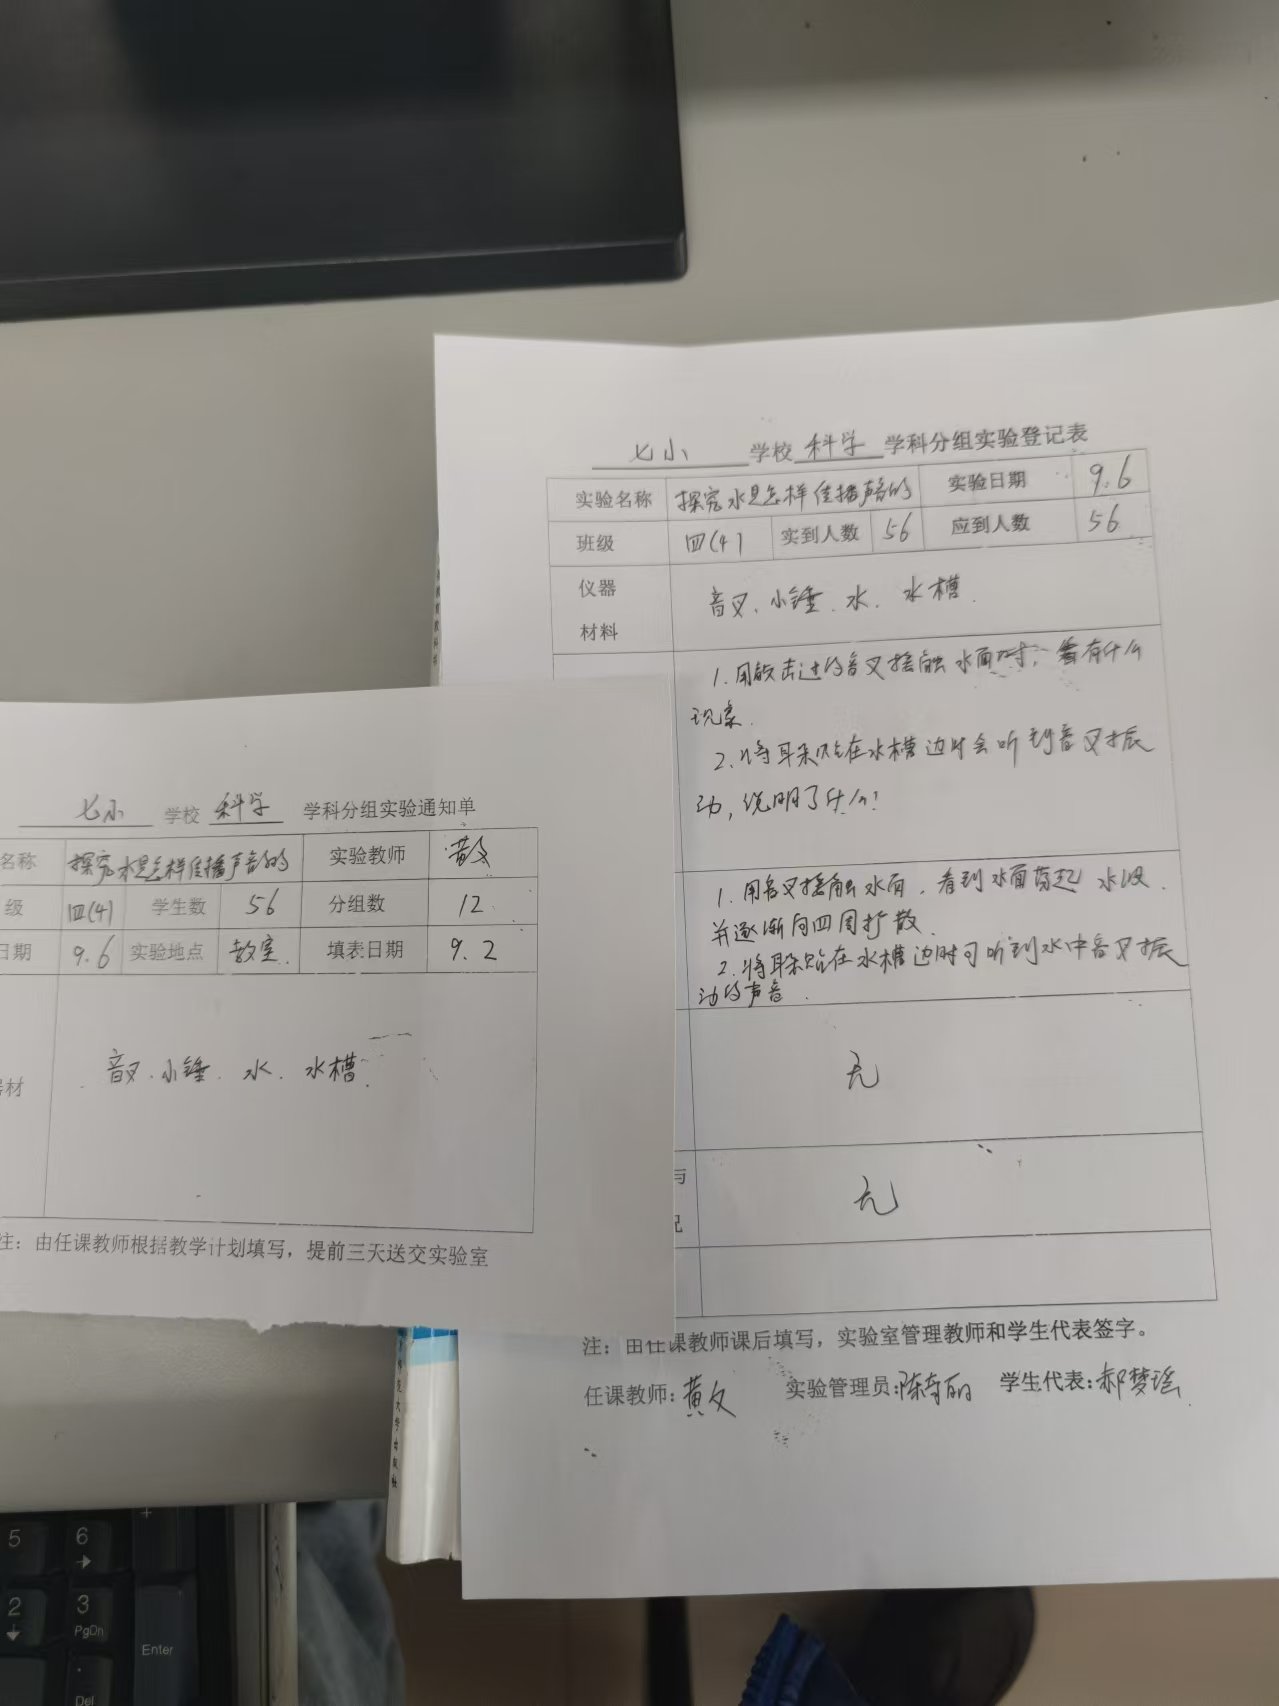 七小 学校 科学 学科分组实验登记表
实验名称 探究水是怎样传播声音的 实验日期 9.6
班级 四(4) 实到人数 56 应到人数 56
仪器
材料
音叉、小锤、水、水槽
1.用敲击过的音叉接触水面时,看有什么
现象.
2.将耳朵贴在水槽边时会听到音叉振
动,说明了什么?
1.用音叉接触水面,看到水面荡起水波.
并逐渐向四周扩散
2.将耳朵贴在水槽边时可听到水中音叉振
动的声音.
无
与
无
注:由任课教师课后填写,实验室管理教师和学生代表签字。
任课教师: 黄文 实验管理员: 学生代表:郝梦瑶
七小 学校 科学 学科分组实验通知单
名称 探究水是怎样传播声音的 实验教师
级 四(4) 学生数 56 分组数 12
日期 9.6 实验地点 教室 填表日期 9.2
材
音叉、小锤、水、水槽.
注:由任课教师根据教学计划填写,提前三天送交实验室
5 6
2 3
PgDn
Enter
Del